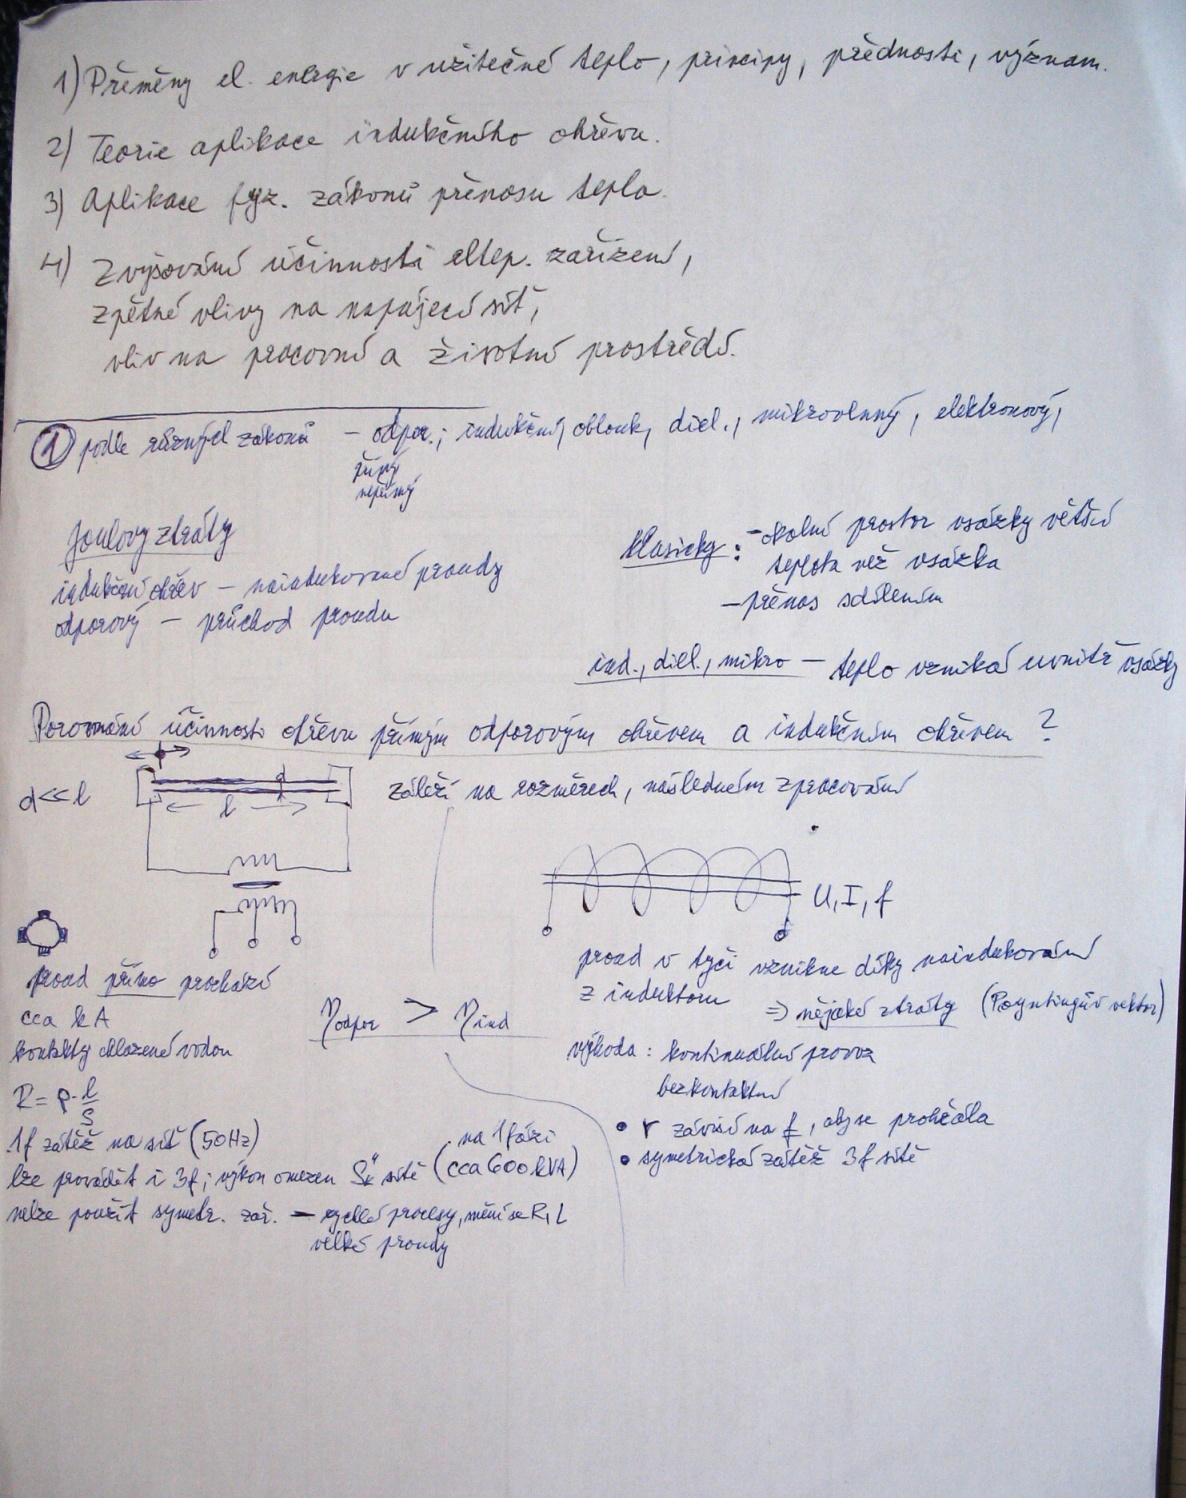 1) Přeměny el. energie v užitečné teplo, principy, přednosti, význam.
2) Teorie aplikace indukčního ohřevu.
3) Aplikace fyz. zákonů přenosu tepla.
4) Zvyšování účinnosti eltep. zařízení,
zpětné vlivy na napájecí síť,
vliv na pracovní a životní prostředí.
1 podle různých zákonů – odpor.; indukční, oblouk, diel., mikrovlnný, elektronový,
přímý
nepřímý
Joulovy ztráty
indukční ohřev – naindukované proudy
odporový – průchod proudu
klasicky: – okolní prostor vsázky větší
teplota než vsázka
– přenos sdílením
ind., diel., mikro – teplo vzniká uvnitř vsázky
Porovnání účinnosti ohřevu přímým odporovým ohřevem a indukčním ohřevem ?
d<<l
d
l
záleží na rozměrech, následném zpracování
U, I, f
proud přímo prochází
cca kA
kontakty chlazené vodou
R = ρ · l/S
1f zátěž na síť (50Hz)
lze provádět i 3f; výkon omezen Sk" sítě (cca 600 kVA)
na 1 fázi
nelze použít symetr. zař. – rychlé procesy, mění se R, L
velké proudy
ηodpor > ηind
proud v tyči vznikne díky naindukování
z induktoru ⇒ nějaké ztráty (Poyntingův vektor)
výhoda: kontinuální provoz
bezkontaktní
• r závisí na f, aby se prohřála
• symetrická zátěž 3f sítě